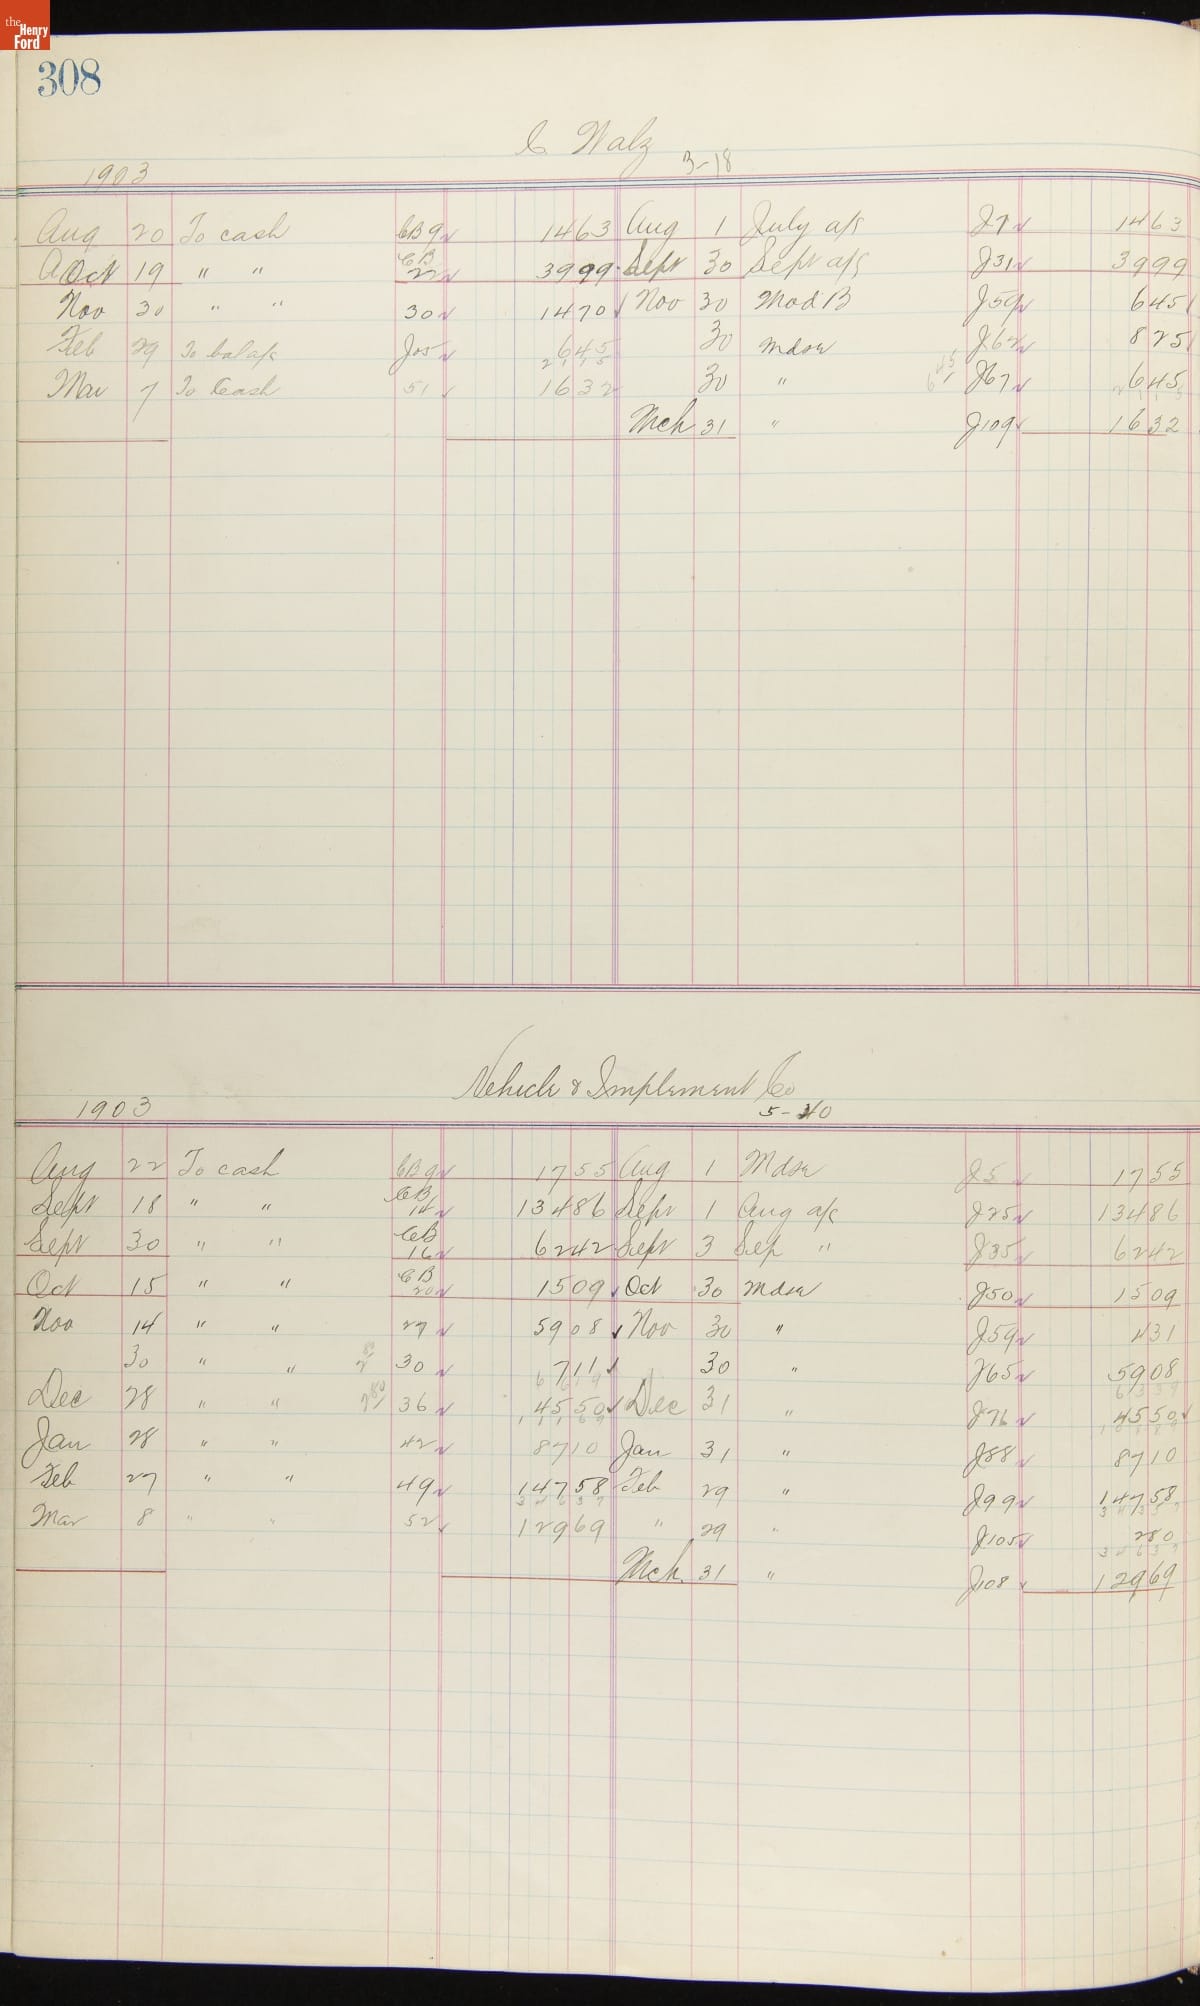 the Henry Ford
308
C Walz
1903 3-18
Aug 20 To cash CB 9 1463 Aug 1 July a/c J7 1463
Oct 19 " " CB 22 3999 Sept 30 Sept a/c J31 3999
Nov 30 " " 30 1470 Nov 30 Mod B J59 645
Feb 29 To bal a/c J105 645 30 Mdse J62 825
2115
Mar 7 To Cash 51 1632 30 " 645 J67 645
2115
Mch 31 " J109 1632
Vehicle & Implement Co
1903 5-40
Aug 22 To cash CB 9 1755 Aug 1 Mdse J5 1755
Sept 18 " " CB 14 13486 Sept 1 Aug a/c J25 13486
Sept 30 " " CB 16 6242 Sept 3 Sep " J35 6242
Oct 15 " " CB 20 1509 Oct 30 Mdse J50 1509
Nov 14 " " 27 5908 Nov 30 " J59 431
30 " " 280 30 711 30 " J65 5908
6619 6339
Dec 28 " " 280 36 4550 Dec 31 " J76 4550
11169 10889
Jan 28 " " 42 8710 Jan 31 " J88 8710
Feb 27 " " 49 14758 Feb 29 " J99 14758
34637 34357
Mar 8 " " 52 12969 " 29 " J105 280
34637
Mch. 31 " J108 12969